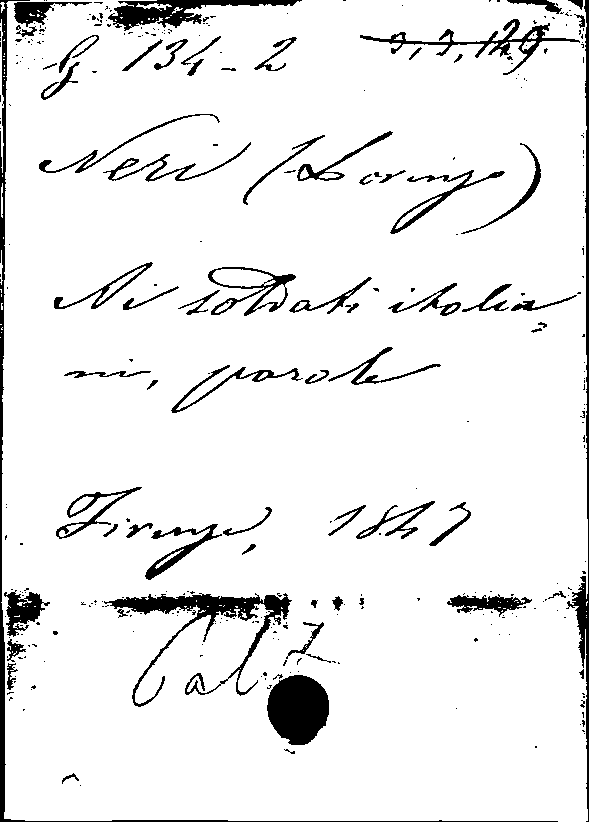 G. 134-2 3, 3, 129.
Neri (Lorenzo)
Ai soldati italia
ni, parole
Firenze, 1847
Cal.